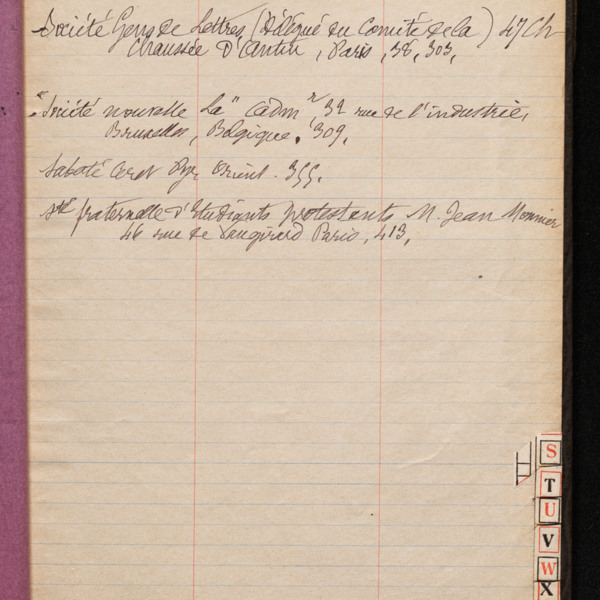 Société Gens de Lettres (Délégué du Comité de la) 47 Ch
Chaussée d'Antin, Paris, 38, 303,
"Société nouvelle La" adm r, 32 rue de l'industrie,
Bruxelles, Belgique. 309.
Sabaté Ceret Pyr. Orient. 355.
Sté fraternelle d'Etudiants protestants M. Jean Monnier
46 rue de Vaugirard Paris, 413,
S
T
U
V
W
X